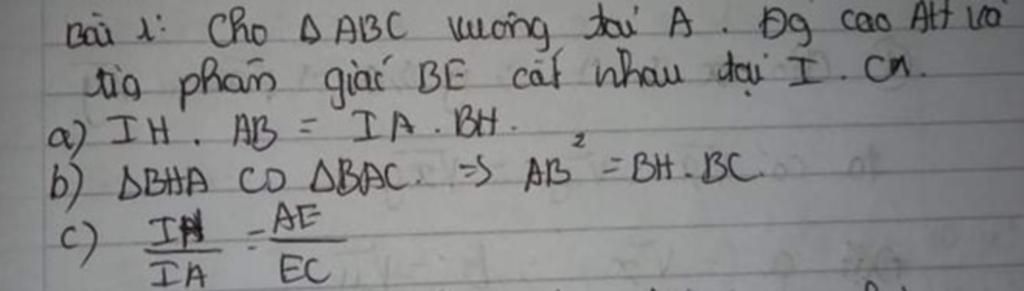 Bài 1: Cho Δ ABC vuông tại A. Đg cao AH và
tia phân giác BE cắt nhau tại I. Cm.
a) IH. AB = IA. BH.
b) ΔBHA ∽ ΔBAC. => AB² = BH. BC.
c) IH/IA = AE/EC